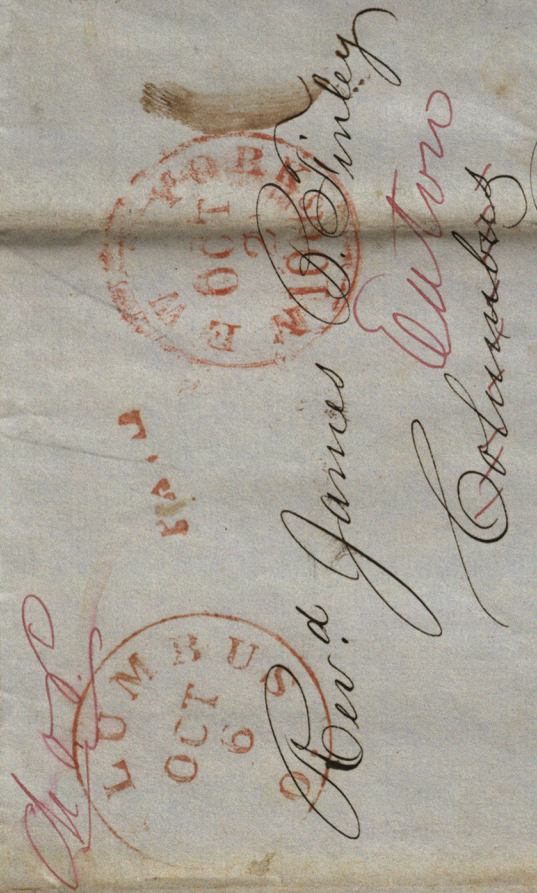 NEW YORK
OCT
2
10 cts
PAID
LUMBUS
OCT
6
O
Rev.d James D. Finley
Eaton
Columbus